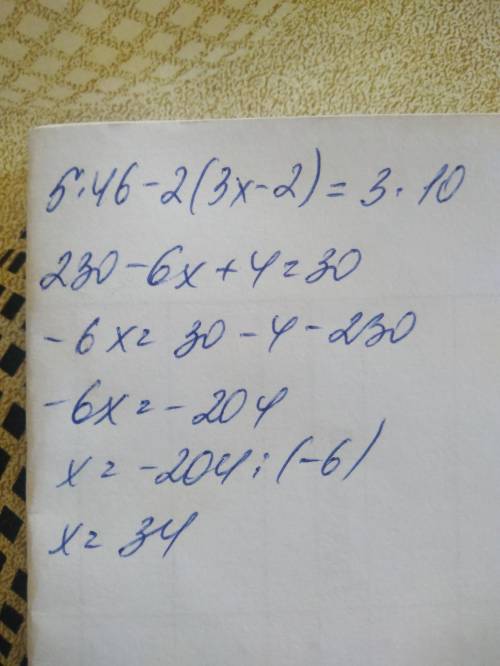 5·46-2(3x-2)=3·10
230-6x+4=30
-6x=30-4-230
-6x=-204
x=-204:(-6)
x=34